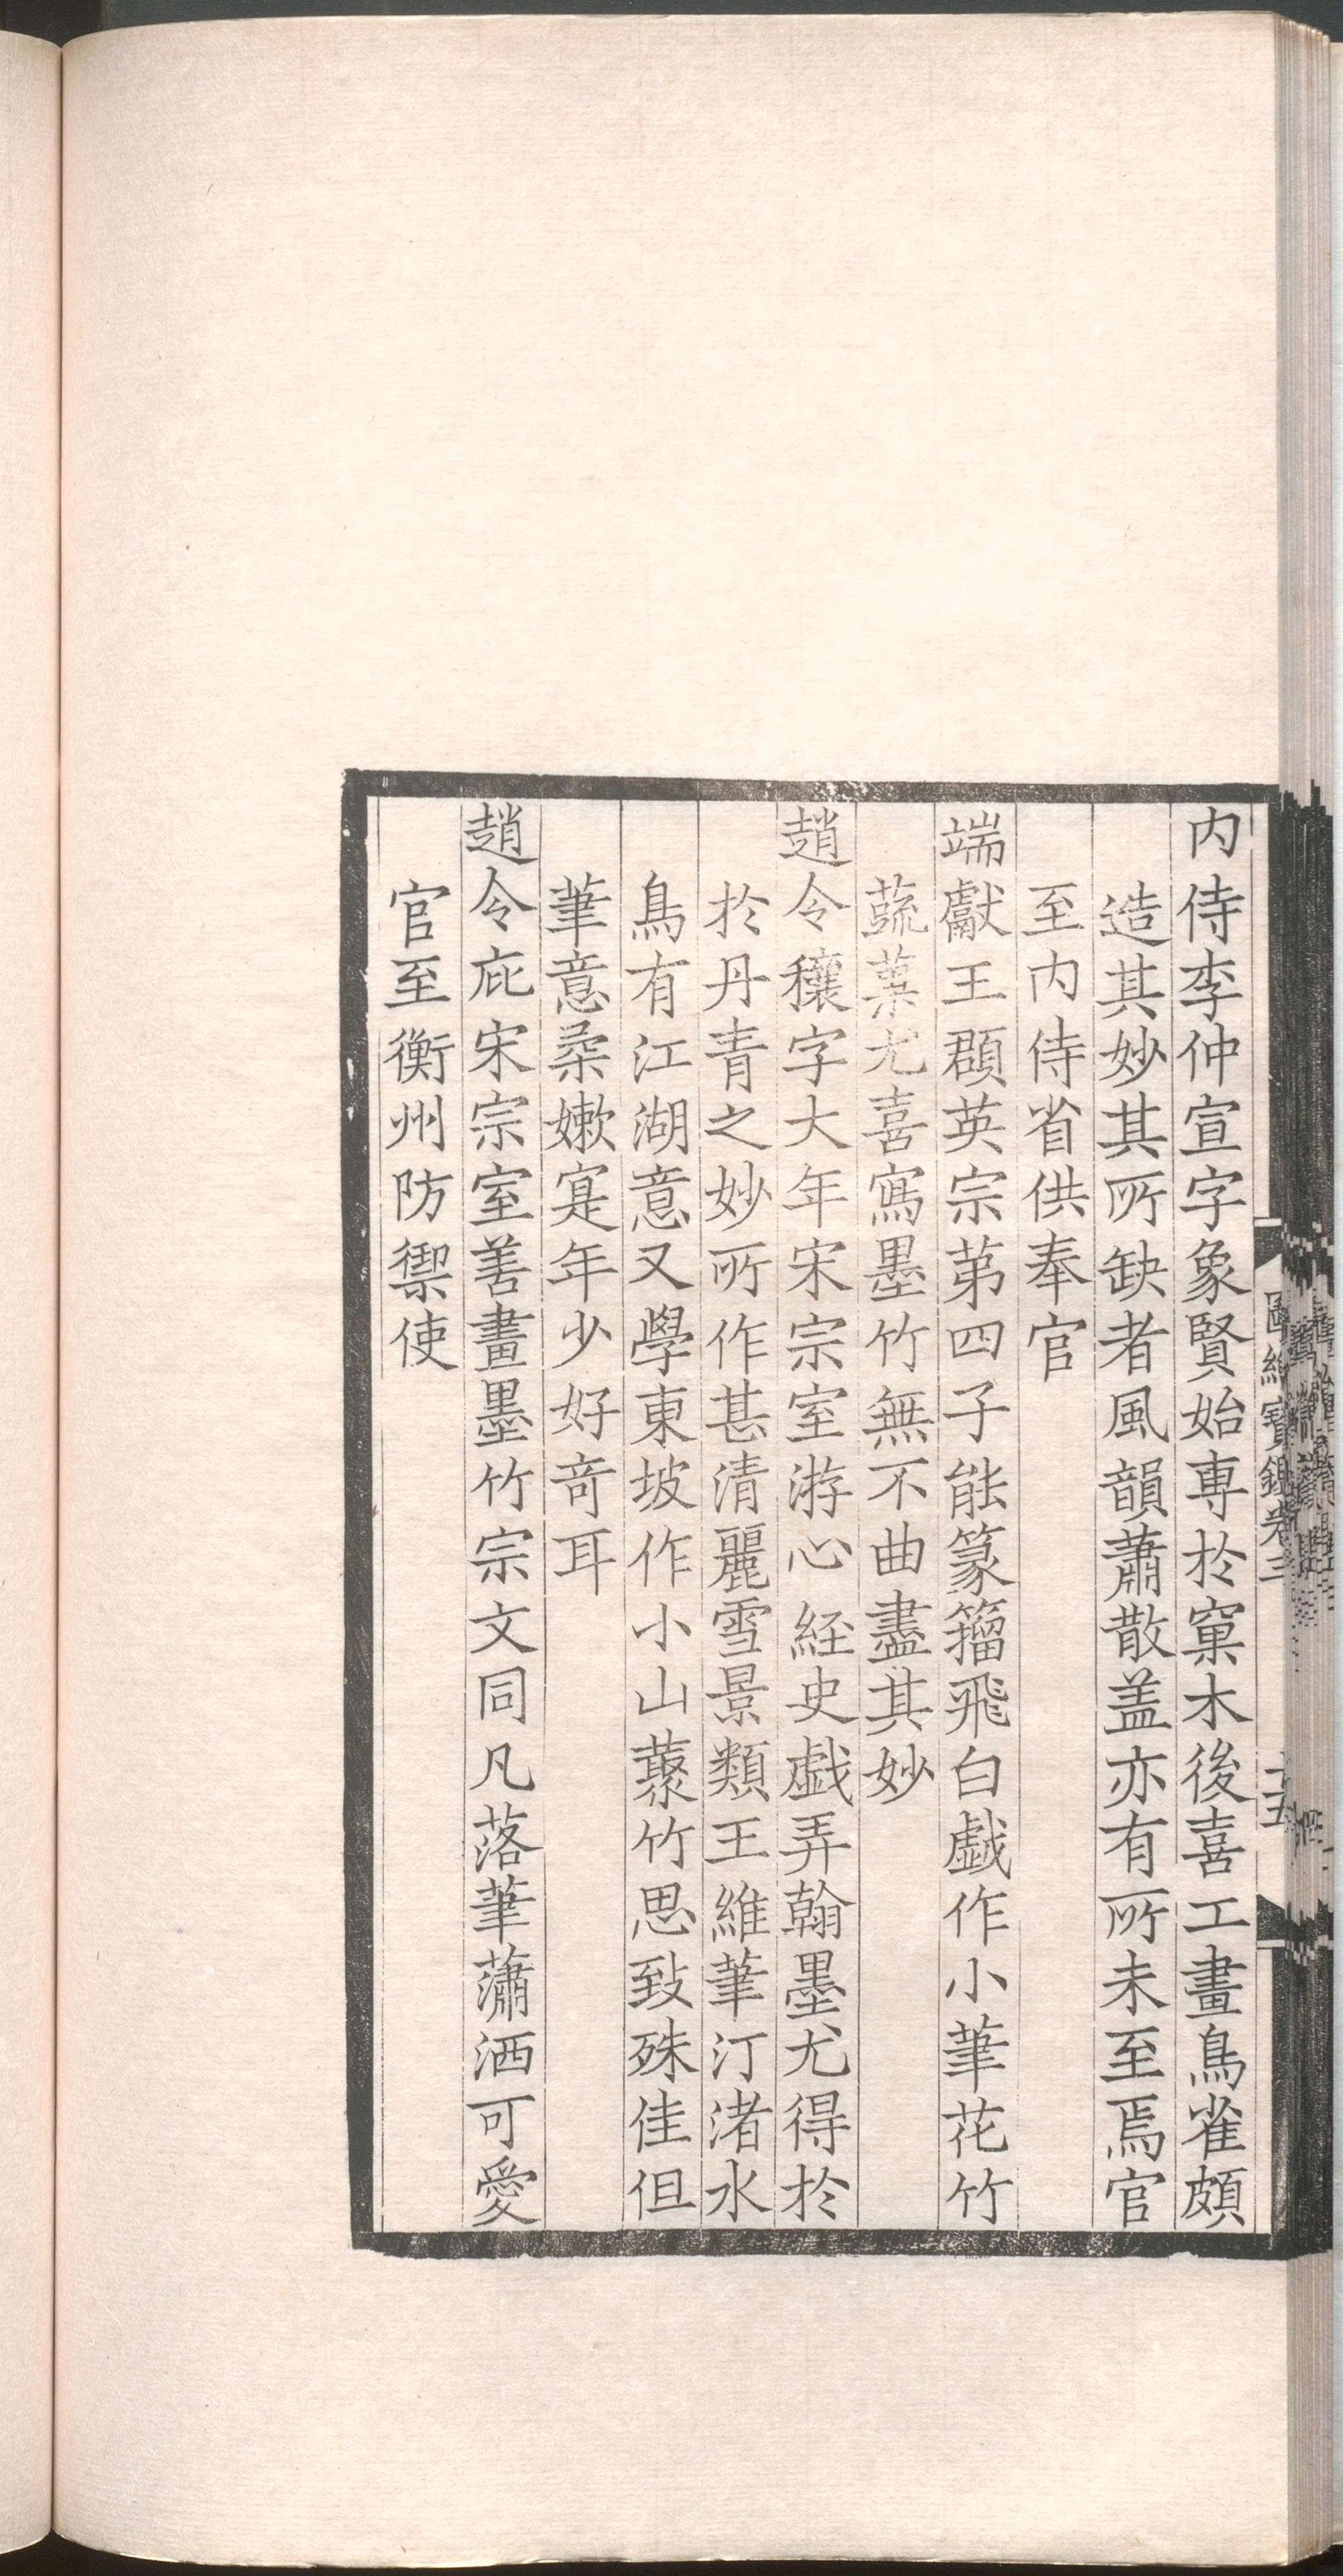 内侍李仲宣字象賢始専於窠木後喜工畫鳥雀頗
造其妙其所缺者風韻蕭散盖亦有所未至焉官
至内侍省供奉官
端獻王頵英宗苐四子能篆籀飛白戯作小筆花竹
蔬菓尤喜寫墨竹無不曲盡其妙
趙令穰字大年宋宗室游心經史戯弄翰墨尤得於
於丹青之妙所作甚清麗雪景類王維筆汀渚水
鳥有江湖意又學東坡作小山藂竹思致殊佳但
筆意柔嫩寔年少好竒耳
趙令庇宋宗室善畫墨竹宗文同凡落筆蕭洒可愛
官至衡州防禦使
圖繪寶鑑卷三
十五